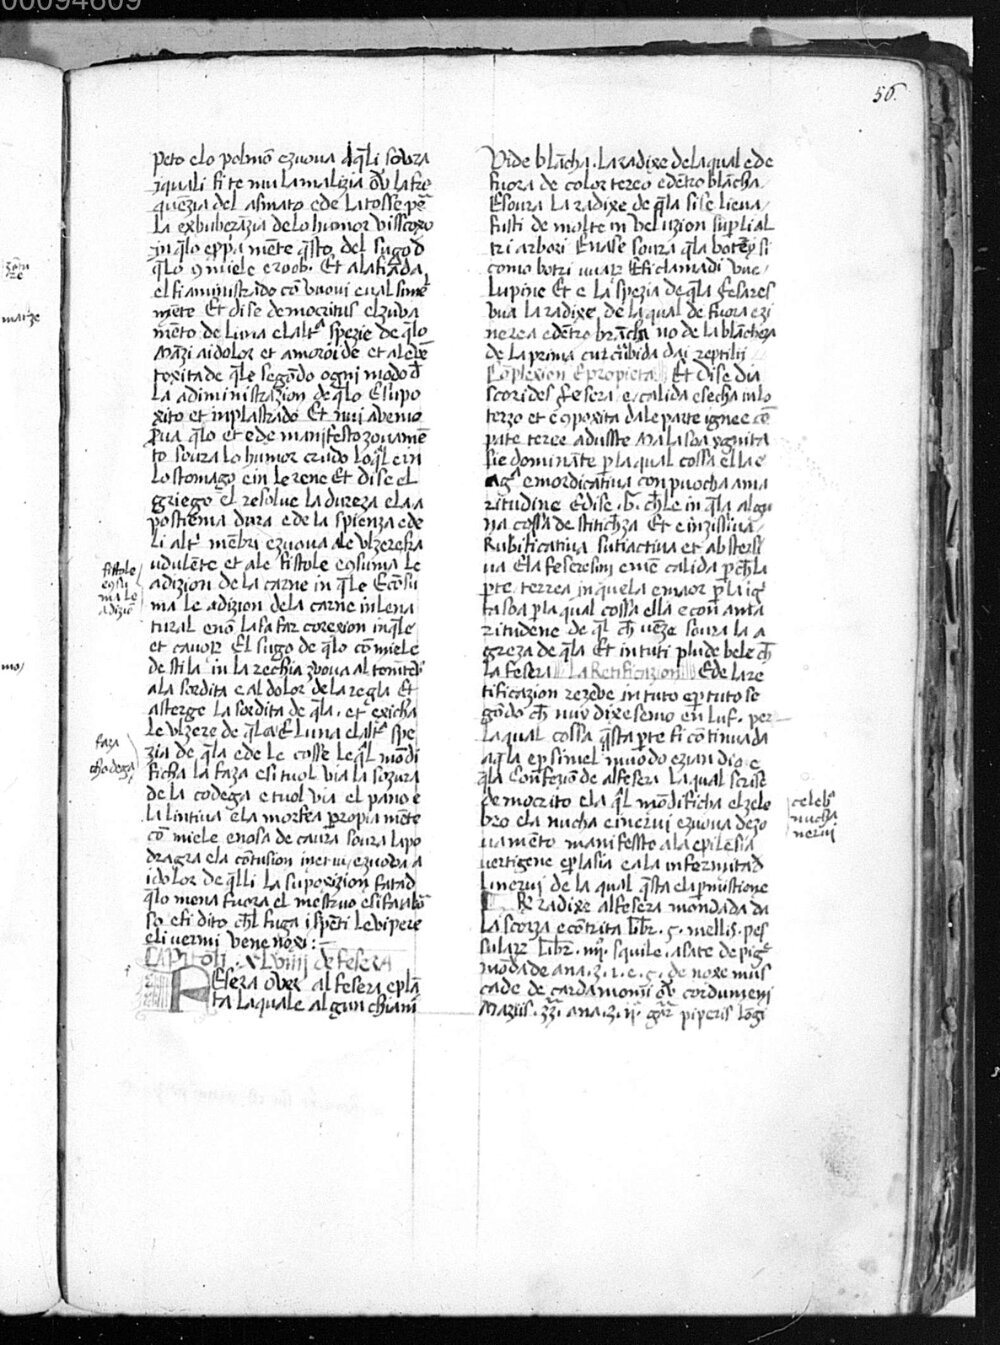 00094609
56.
peto elo polmō ezuoua aq̄li soura
iquali si te mu la malizia oū la fre
quēzia del asmato ede la tosse pē
la exbuberāzia delo humor visscoxo
in q̄lo eppa mēte q̄sto del sugo d̄
q̄lo 9 miele e roob. Et ala fiāda
el si aministrado cō vuovi eual simē
mēte Et dise democritus el zuva
mēto de luna e laltᵃ spezie de q̄lo
Māzi ai dolor et amoroide et al
toxita de q̄le segōdo ogni modo d̄
la adiministrazion de q̄lo E supo
xito et inplastrado Et nui avemo
pua q̄lo et ede manifesto zovamē
to soura lo humor crudo loq̄l e in
lo stomago e in le rene Et dise el
griego el resolue la dureza ela a
postiema dura ede la spienza ede
li altⁱ mēbri ezuova ale vlzere fra
udulēte et ale fistole 9suma le
adizion de la carne in q̄le E cōsu
ma le adizion dela carne in le na
tural e nō la fa far corexion in q̄le
et cavoɿ El sugo de q̄lo cō miele
de stila in la rechia zuova al
ala sordita e al dolor de la regla Et
asterge la sordita de q̄la. et exicha
le vlzere de q̄la Et luna elaltᵃ spe
zia de q̄la ede le cosse leq̄l mōdi
ficha la faza esi tuol via la sozura
de la codega e tuol via el pano e
la lintiua ela morfea propia mēte
cō miele enosa de caura soura la po
dragra ela cōtusion inerui, ezuova a
i dolor de q̄lli La supoxizion fata d̄
q̄lo mena fuora el mestruo esi fa
so esi dito ch̄l fuga i spēti le vipere
eli vermi venenoxi:~
fistole
9su
ma le
adiziō
faza
chodega
CAPITOƚƚ. XLVIIII de FeseRA
Feseza over alfesera e plā
ta laquale algun chiami
Vide blācha. La radixe dela qual ede
fuora de color tereō edētro blācha.
E soura la radixe de q̄la si se lieua
fusti de molte inveluzion supli al
tri arbori E nase soura q̄la botrỹ si
como botri vuaɿ E si chiamadi vue
lupine Et e la spezia de q̄la fesares
vua la radixe de la qual de fuora ezi
nerea edētro brācha no de la blācheza
de la prima cui cucubida dai reptilii
Cōplexion E propieta Et dise dia
scorides fesera, e calida e secha in lo
terzo et e 9poxita da le parte ignee cō
pate teree adusste Ma la soa ygnita
sie dominate p la qual cossa ella e
e mordicatiua con puocha ama
ritudine E dise .b. ch̄l e in q̄la algu
na cossa de stiticheza Et e inzisiua
Rubificatiua sutiactiua et abstersi
ua E la feseresim e mē calida p ch̄ la
pte terrea in quela e maor p la ig
ta soa p la qual cossa ella e con ama
ritudene de q̄l ch̄ uēze soura la a
greza de q̄la Et in tuti plui debele ch̄
la fesera La Retificazion E de la re
tificazion rezebe in tuto e p tuto se
gōdo ch̄ nuy dixesemo en luf. per
la qual cossa q̄sta pte si cōtinuada
a q̄la e p simel muodo ezian dio e
q̄la confezion de alfesera La qual scrise
democrito ela q̄l mōdificha el zele
bro ela nucha e inerui ezuova de zo
uamēto manifessto ala epilesia
vertigene e plasia e a la infermita d̄
li nerui de la qual q̄sta e la pmistione
Re radixe alfesera mondada da
la scorza e cōtrita libr. 5. mellis. pes
sulaɿ libr. iiij. squile. asate de
mōdade ana. ʒ. 1. e. 5. de noxe mus
cade de cardamomi oū cordumeni
Maziis. ʒʒ. ana. ʒ. ij. piperis lōgi
celebᵒ
nucha
nerui